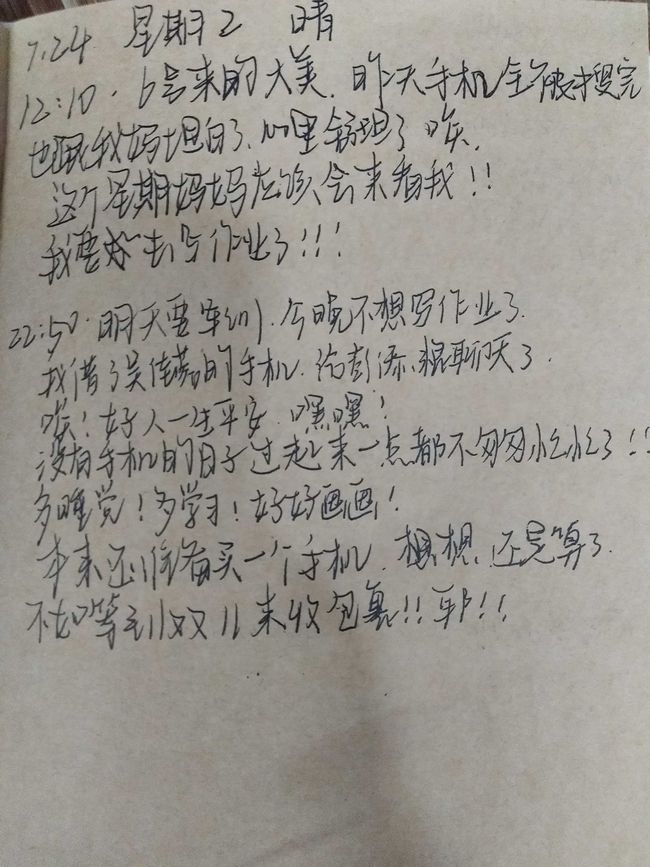 7.24 星期2 晴
12:10. 6号来的大美. 昨天手机全被搜完
也跟我妈坦白了. 心里舒坦了 唉.
这个星期妈妈应该会来看我!!
我要去写作业了!!!
22:50. 明天要军训. 今晚不想写作业了.
我借了吴佳的手机. 给彭添聊天了.
唉! 好人一生平安. 嘿嘿!
没有手机的日子过起来一点都不匆匆忙忙了!!
多睡觉! 多学习! 好好画画!
本来还准备买一个手机. 想想. 还是算了.
不如等到双11来收包裹!! 耶!!